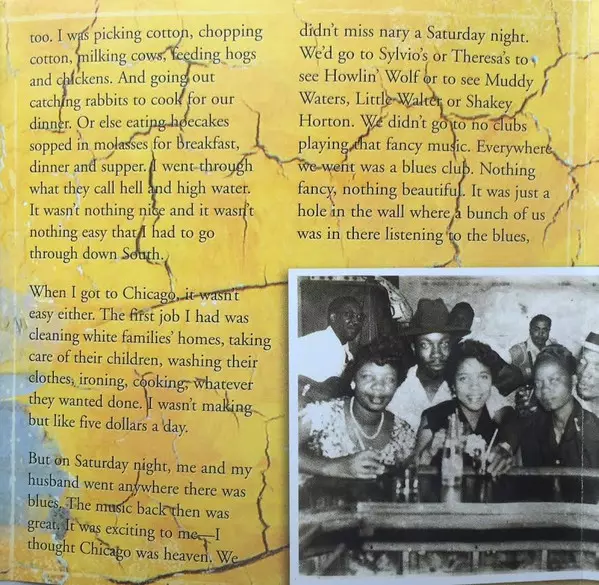 too. I was picking cotton, chopping
cotton, milking cows, feeding hogs
and chickens. And going out
catching rabbits to cook for our
dinner. Or else eating hoecakes
sopped in molasses for breakfast,
dinner and supper. I went through
what they call hell and high water.
It wasn't nothing nice and it wasn't
nothing easy that I had to go
through down South.
When I got to Chicago, it wasn't
easy either. The first job I had was
cleaning white families' homes, taking
care of their children, washing their
clothes, ironing, cooking, whatever
they wanted done. I wasn't making
but like five dollars a day.
But on Saturday night, me and my
husband went anywhere there was
blues. The music back then was
great. It was exciting to me—I
thought Chicago was heaven. We
didn't miss nary a Saturday night.
We'd go to Sylvio's or Theresa's to
see Howlin' Wolf or to see Muddy
Waters, Little Walter or Shakey
Horton. We didn't go to no clubs
playing that fancy music. Everywhere
we went was a blues club. Nothing
fancy, nothing beautiful. It was just a
hole in the wall where a bunch of us
was in there listening to the blues,